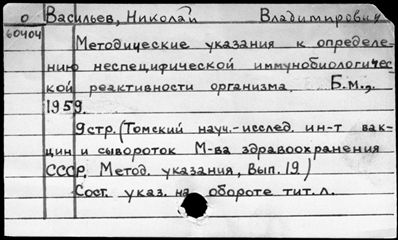 О Васильев, Николай Владимирович
60404
Методические указания к определе-
нию неспецифической иммунобиологичес-
кой реактивности организма. Б.м.,
1959.
9стр. (Томский науч.-исслед. ин-т вак-
цин и сывороток М-ва здравоохранения
СССР. Метод. указания, Вып. 19)
Сост. указ. на обороте тит. л.